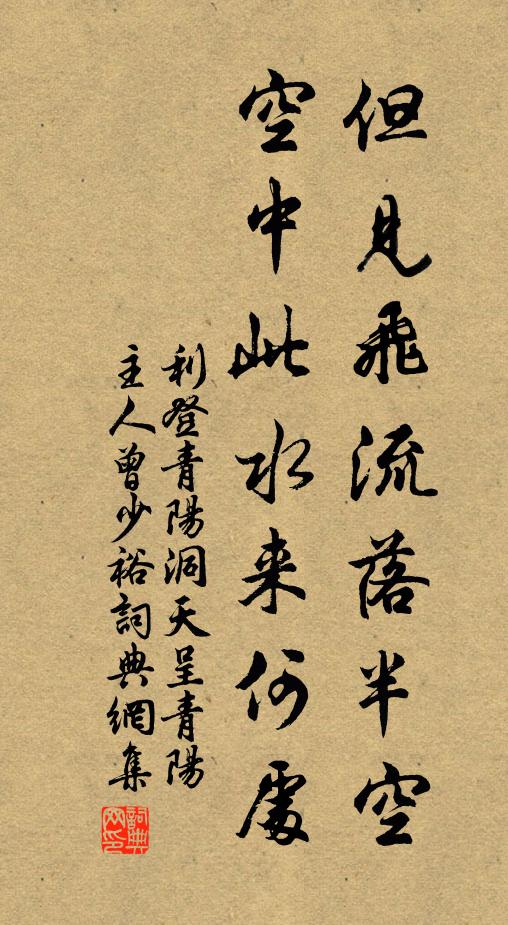 但見飛流落半空
空中此水来何處
利登青陽洞天呈青陽
主人曾少裕詞典網集
詞典
网印